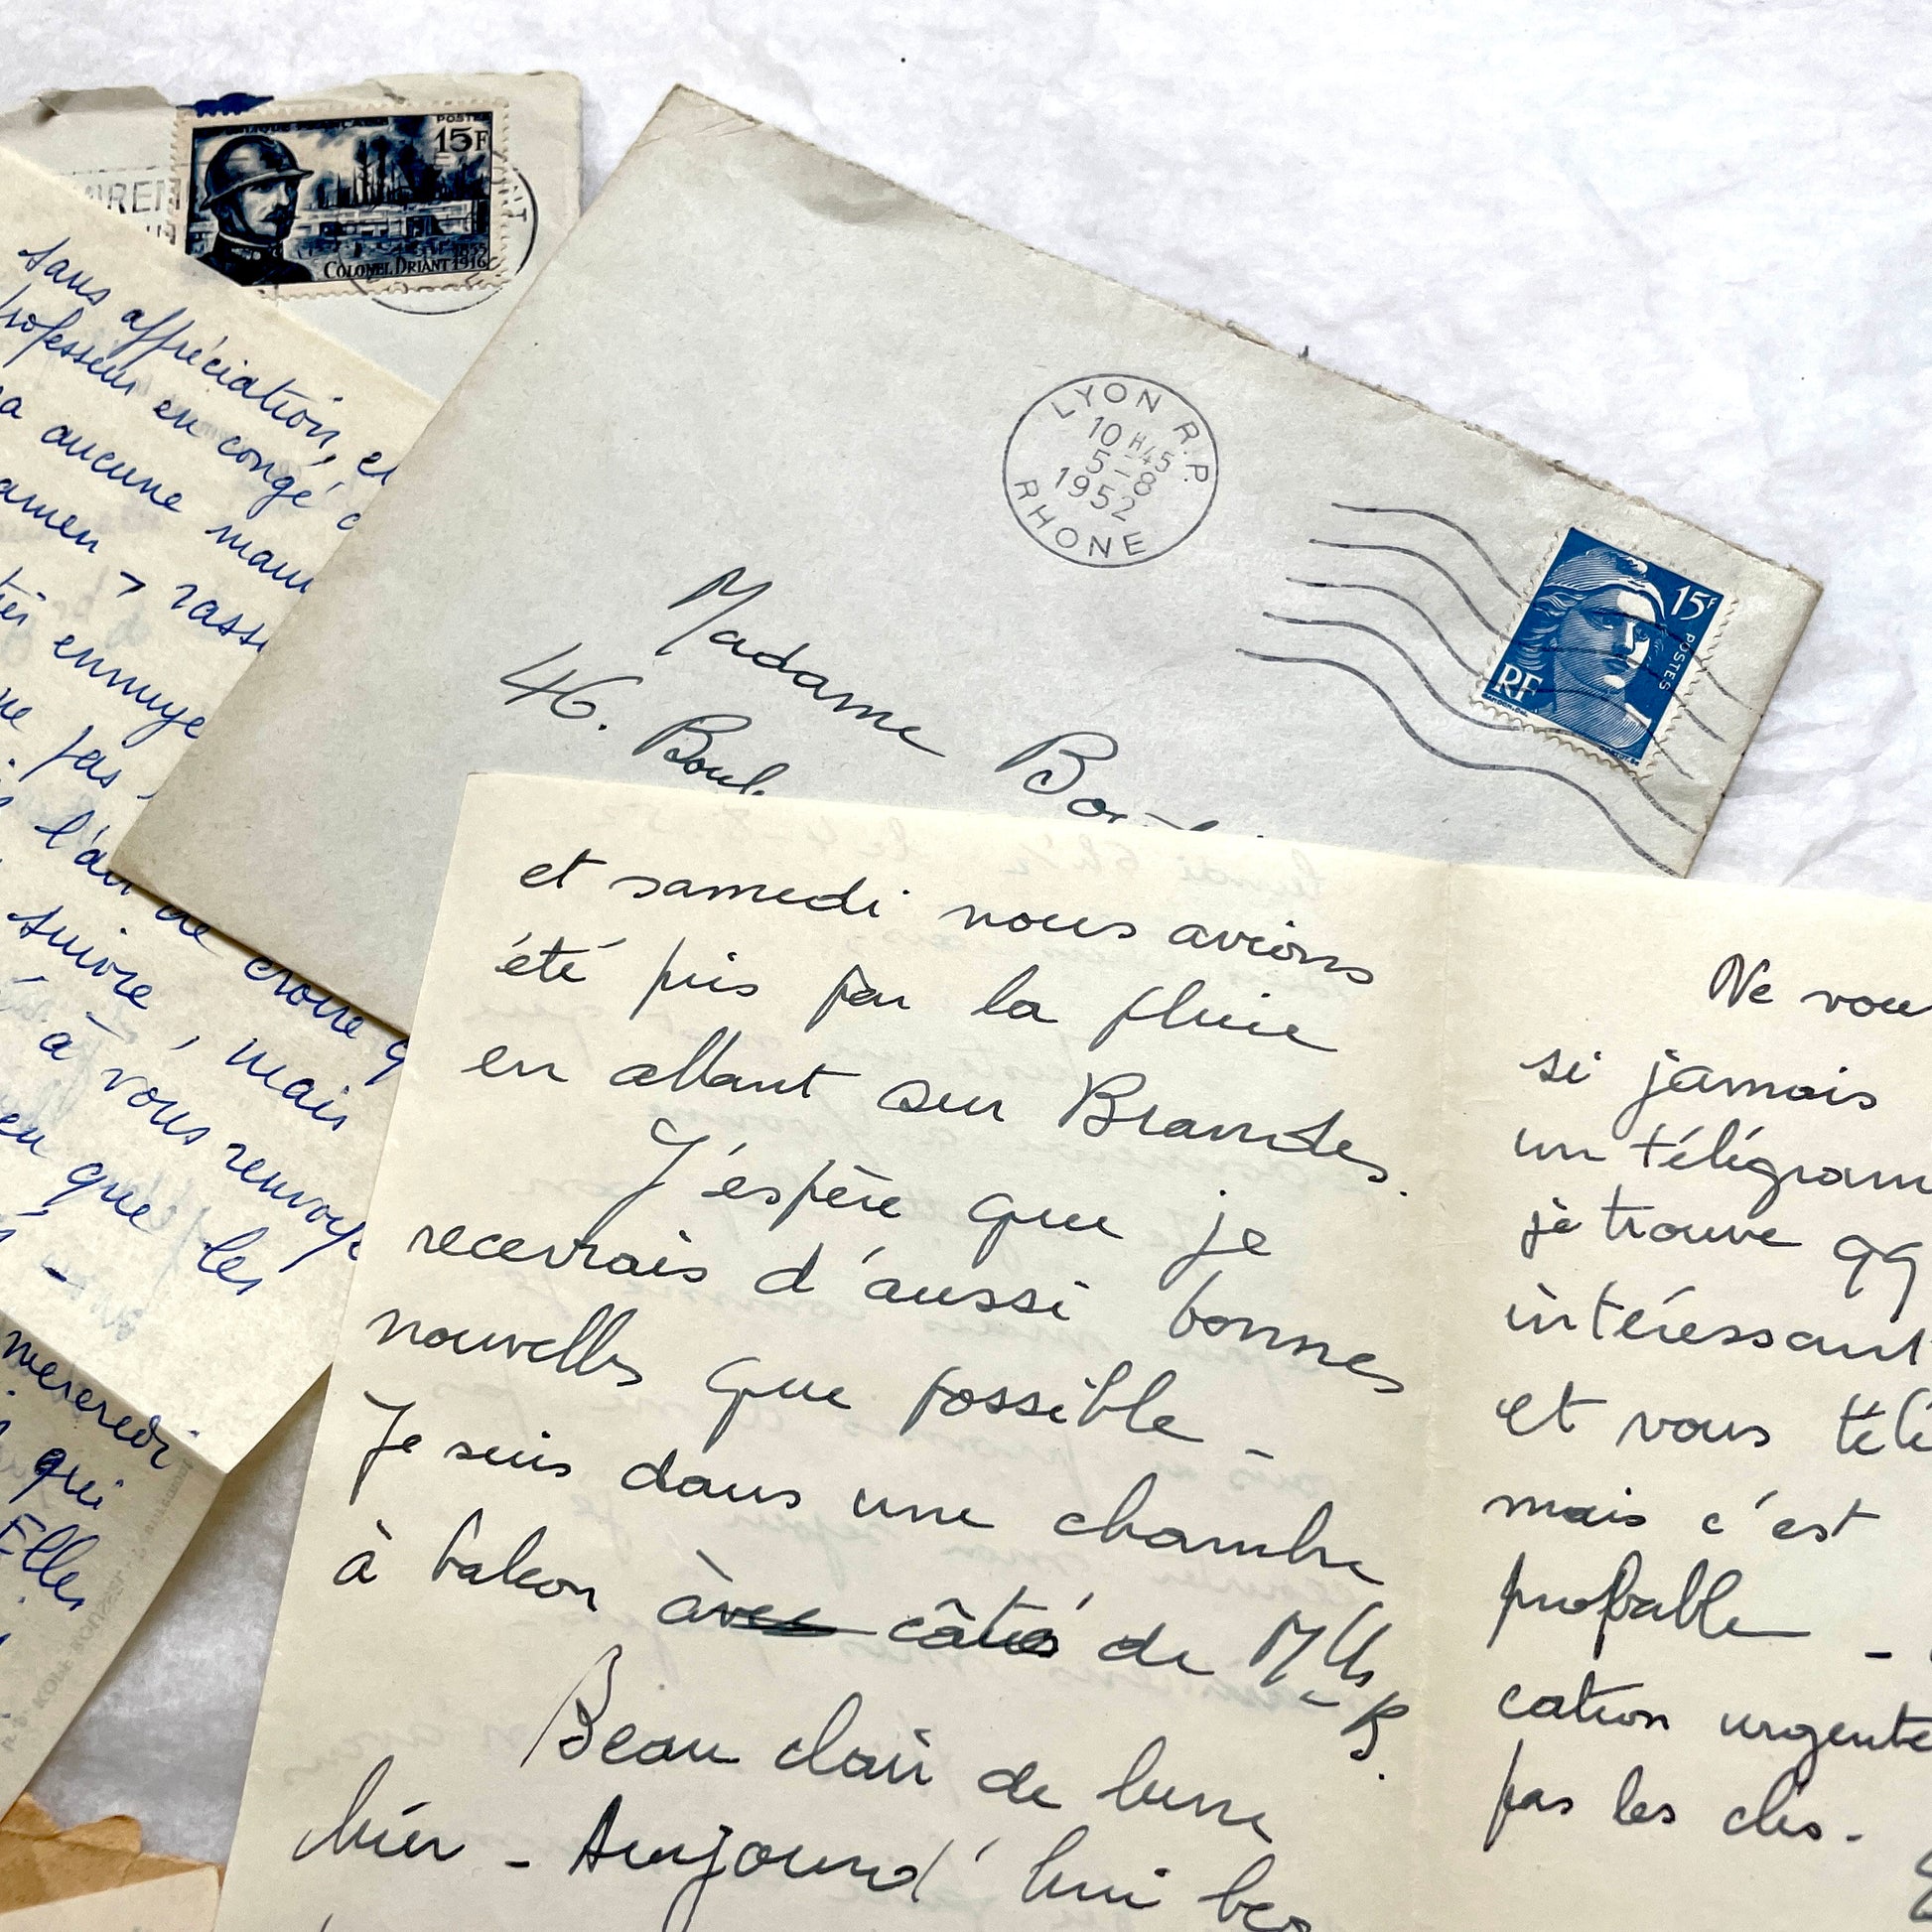 POSTES
15F
COLONEL DRIANT 1916
LYON R.P.
10 H45
5-8
1952
RHONE
15F
POSTES
RF
Madame
46. Boul.
sans appréciation, et
professeur en congé
aucune
amen
ennuye
pas
l'air de croire
suivre, mais
à vous renvoye
que les
mercredi
qui
Elles
et samedi nous avions
été pris par la pluie
en allant sur Brandes.
J'espère que je
recevrais d'aussi bonnes
nouvelles que possible -
Je suis dans une chambre
à balcon à côté de Mlle B.
Beau clair de lune
hier - Aujourd'hui
Ne vou
si jamais
un télégram
je trouve qq
intéressant
et vous télé
mais c'est
probable -
cation urgente
pas les clés.